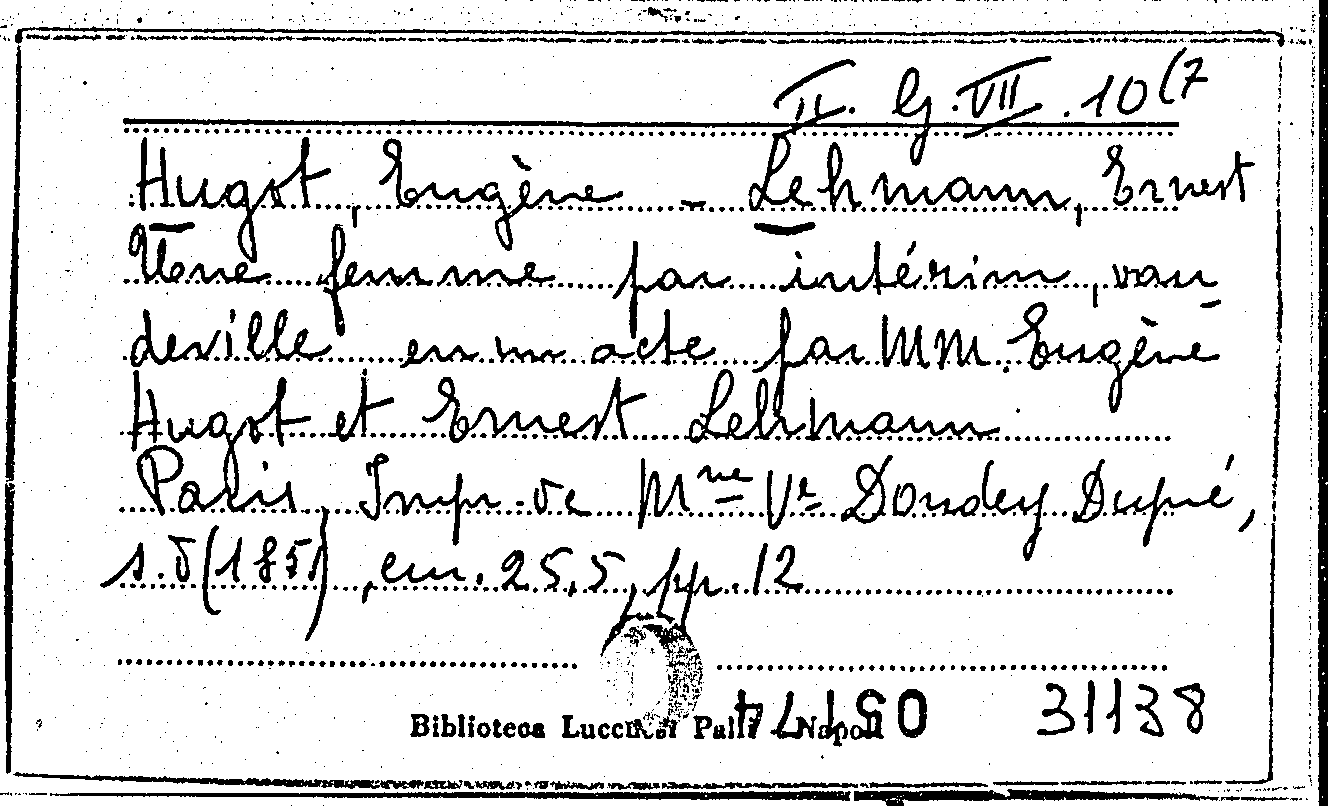 II. G. VII. 10(7
Hugot, Eugène - Lehmann, Ernest
Une femme par intérim, vau
deville en un acte par MM. Eugène
Hugot et Ernest Lehmann
Paris, Impr. de Mme Ve Dondey Dupré,
s.d (1851), cm. 25,5, pp. 12
31138
Biblioteca Lucchesi Palli - Napoli